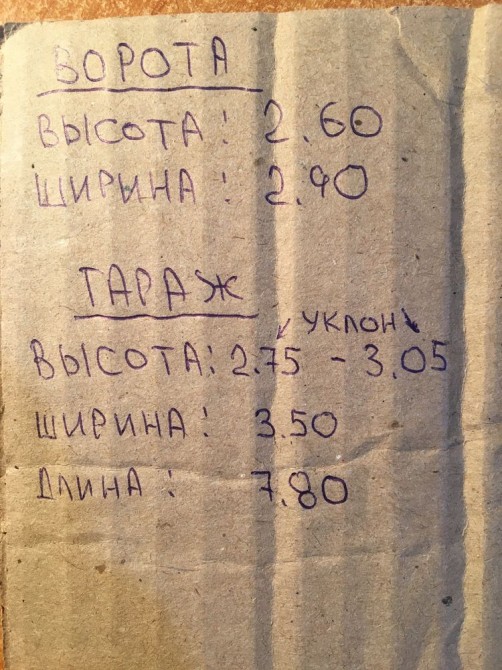 ВОРОТА
ВЫСОТА: 2.60
ШИРИНА: 2.90
ГАРАЖ
УКЛОН
ВЫСОТА: 2.75 - 3.05
ШИРИНА: 3.50
ДЛИНА: 7.80